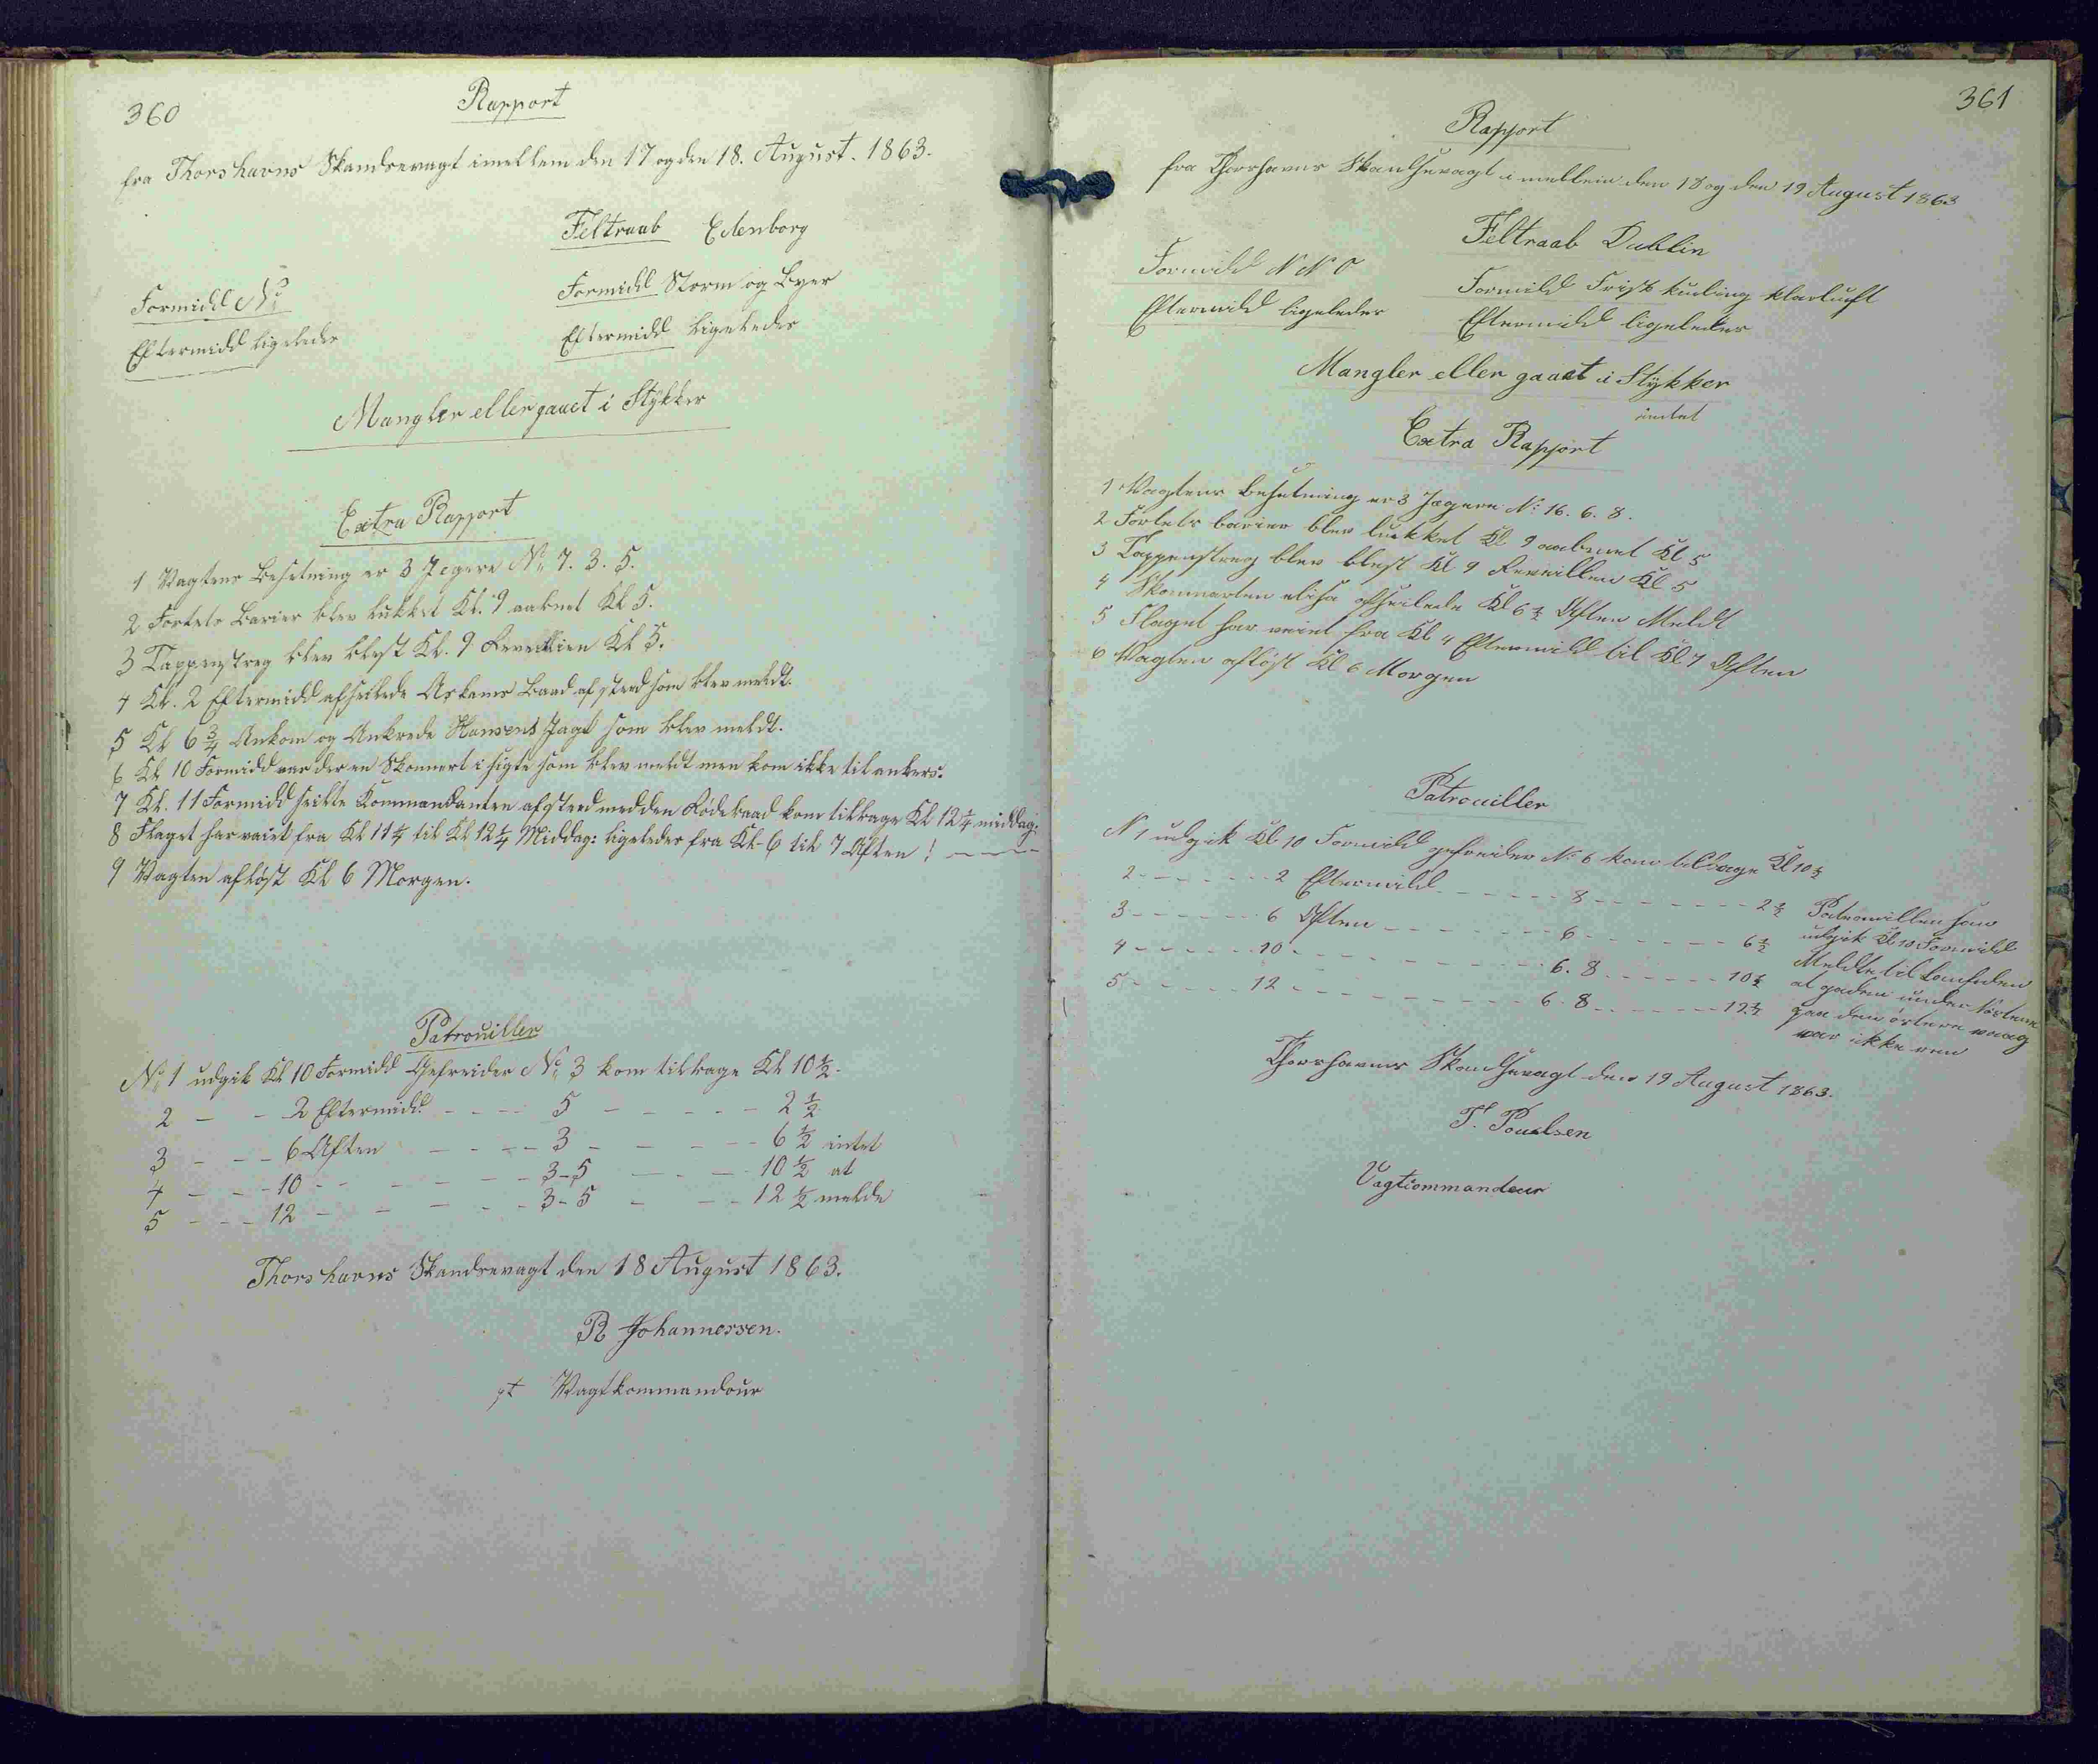 360
Rapport
fra Thorshavns Skandsevagt imellem den 17 og den 18. August. 1863.
Feltraab Edenborg
Formidd N.
Formidd Storm og Byer
Eftermidd ligeledes
Eftermidd ligeledes
Mangler eller gaaet i Stykker
Extra Rapport
1 Vagtens Besetning er 3 Jegere No 7. 3. 5.
2 Fortets Barier blev lukket Kl. 9 aabnet Kl 5.
3 Tappenstreg blev blest Kl. 9 Revellien Kl 5.
4 Kl. 2 Eftermidd afseilede Baad afsted som blev meldt.
5 Kl 6 3/4 Ankom og Ankrede Hansens Jagt som blev meldt.
6 Kl 10 Formidd var der en Skonnert i sigte som blev meldt men kom ikke til ankers.
7 Kl. 11 Formidd seilte Kommandanten afsted med den Rödebaad kom tilbage Kl 12 1/4 middag:
8 Flaget har vaiet fra Kl 11 1/4 til Kl 12 1/4 Middag: ligeledes fra Kl-6 til 7 Aften!
9 Vagten aflöst Kl 6 Morgen.
Patrouiller
No 1 udgik Kl 10 Formidd Gefreider No 3 kom tilbage Kl 10 1/2.
2 - - 2 Eftermidd - - - - 5 - - - - - 2 1/2
3 - - - 6 Aften - - - - 3 - - - - 6 1/2 intet
4 - - - 10 - - - - - - 3-5 - - - 10 1/2 at
5 - - - 12 - - - - - 3-5 - - - 12 1/2 melde
Thorshavns Skandsevagt den 18 August 1863.
R Johannessen.
pt Vagtkommandour
361
Rapport
fra Thorshavns Skandsevagt i mellem den 18 og den 19 August 1863
Feltraab Dublin
Formidd N N O
Formidd Frisk kuling klarluft
Eftermidd ligeledes
Eftermidd ligeledes
Mangler eller gaaet i Stykker
intet
Extra Rapport
1 Vagtens Besetning er 3 Jægere No 16. 6. 8.
2 Fortets barier blev lukket Kl 9 aabenet Kl 5
3 Tappenstreg blev blest Kl 9 Reveillen Kl 5
4 Skonnerten elisa afseilede Kl 6 1/2 Aften Meldt
5 Flaget har veiet fra Kl 4 Eftermidd til Kl 7 Aften
6 Vagten aflöst Kl 6 Morgen
Patrouiller
N 1 udgik Kl 10 Formidd gefreider No 6 kom tilbage Kl 10 1/2
2 - - - - - - 2 Eftermidd - - - - - - 8 - - - - - - - 2 1/2 Patrouillen som
3 - - - - - - 6 Aften - - - - - - - 6 - - - - - - 6 1/2 udgik Kl 10 Formidd
4 - - - - - 10 - - - - - - - - - - 6. 8 - - - - - 10 1/2 Meldte til
5 - - - - - 12 - - - - - - - - - - 6. 8 - - - - - 12 1/2 at gaden under
paa den östere vaag
var ikke ren
Thorshavns Skandsevagt den 19 August 1863.
T. Poulsen
Vagtcommandeur